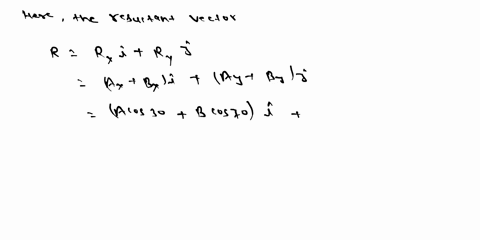 Here, the resultant vector
R = Rₓ i + R_y ĵ
= (Aₓ + Bₓ) î + (A_y + B_y) ĵ
= (A cos 30 + B cos 70) î +